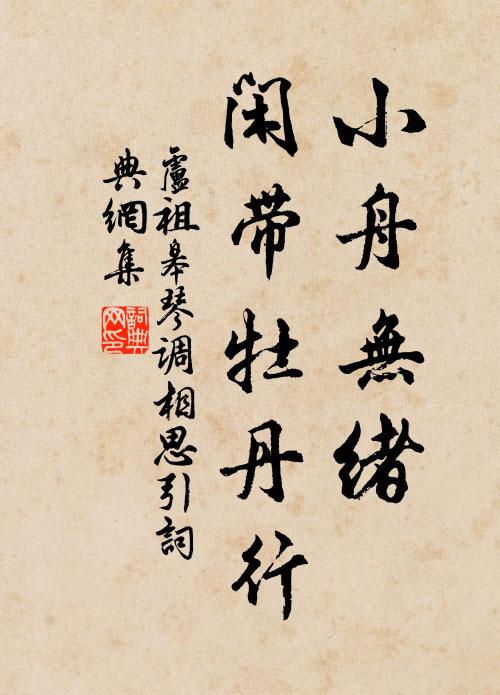 小舟無緒
闲带牡丹行
盧祖皋琴调相思引詞
典網集
詞典网印